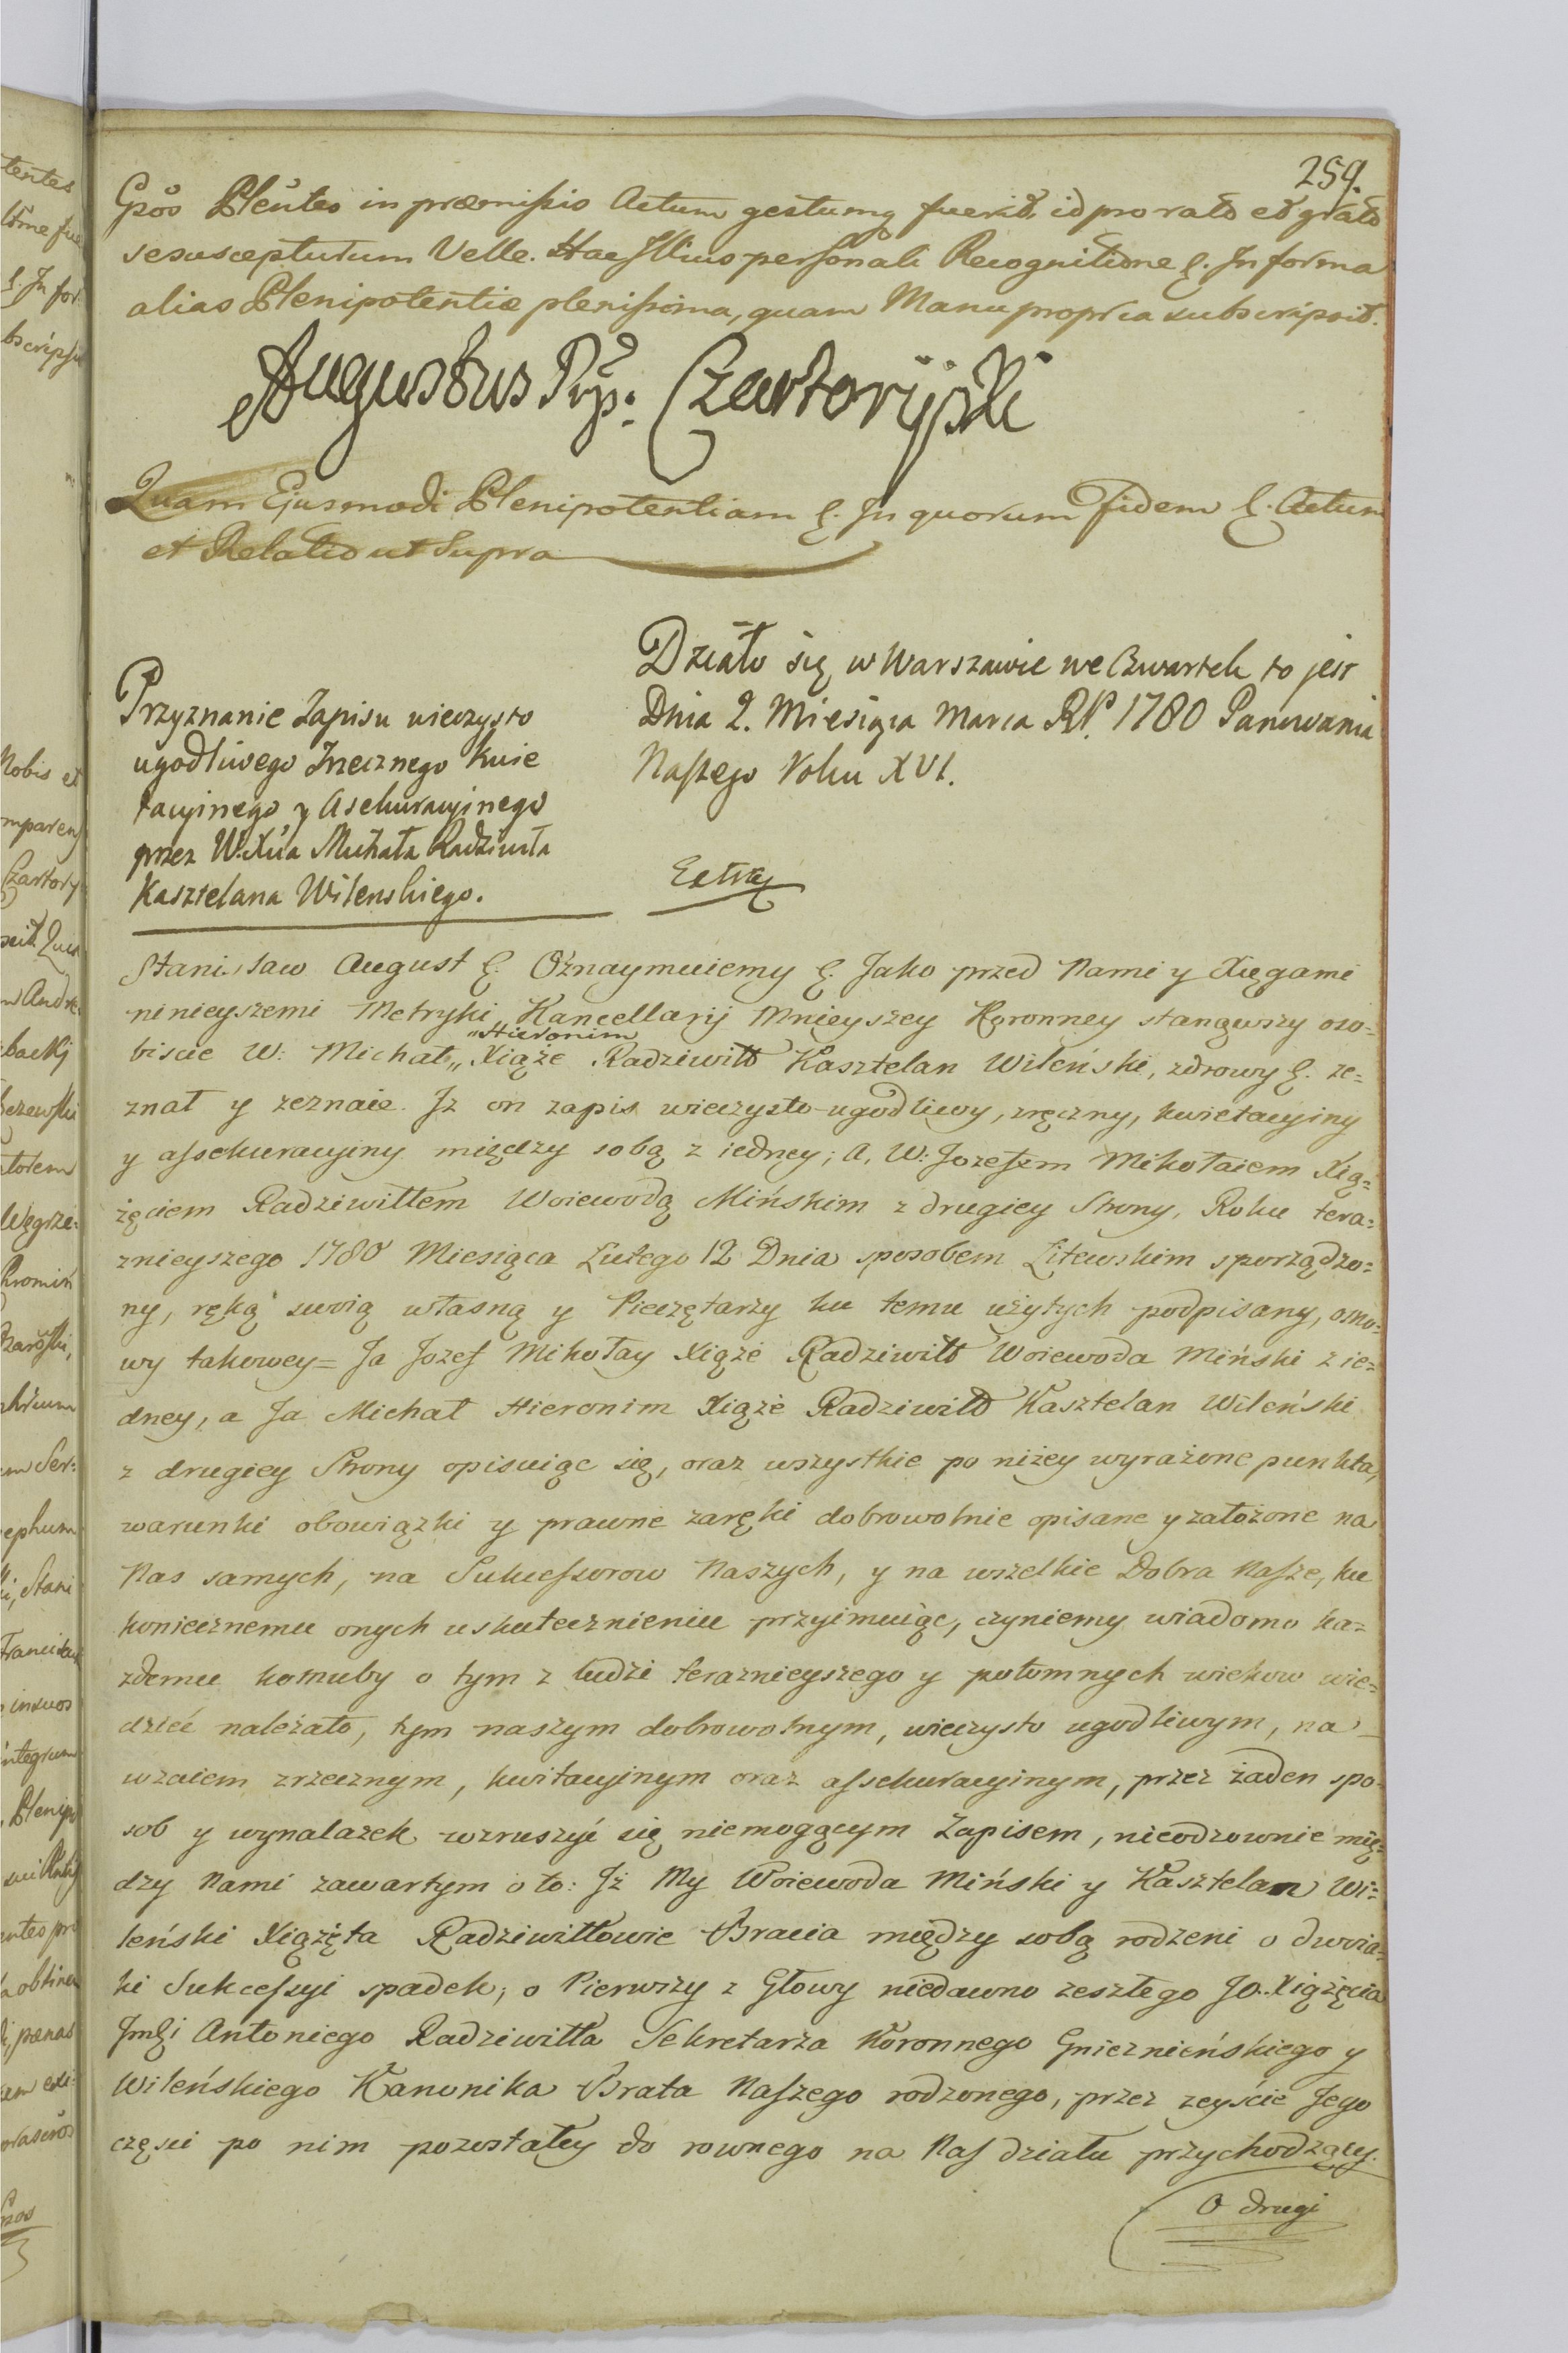 259.
Gñoš Pleñtes in præmissis Actum gestumq fuerit, id pro rato et grato
se suscepturum Velle. Hac Illius personali Recognitione &. In forma
alias Plenipotentiæ plenissima, quam Manu propria subscripsit.
Augustus Czartoryski
Quam Ejusmodi Plenipotentiam &. In quorum Fidem &. Actum
et Relatio ut Supra
Działo się w Warszawie we Czwartek to jest
Dnia 2. Miesiąca Marca RP. 1780 Panowania
Naszego Roku XVI.
Przyznanie Zapisu wieczysto
ugodliwego Zrzecznego Kwie
tacyinego y Asekuracyinego
przez W. Xcia Michała Radziwiła
Kasztelana Wilenskiego.
Stanisław August &. Oznaymuiemy &. Jako przed Nami y Xięgami
ninieyszemi Metryki Kancellarij Mnieyszey Koronney stanąwszy oso=
biscie W: Michał „Hieronim„ Xiąże Radziwiłł Kasztelan Wileński, zdrowy &. ze=
znał y zeznaie. Iz on zapis wieczysto-ugodliwy, zręczny, kwietacyiny
y assekuracyiny między sobą z iedney; a, W. Jozefem Mikołaiem Xią=
żęciem Radziwiłłem Woiewodą Mińskim z drugiey Strony, Roku tera=
znieyszego 1780 Miesiąca Lutego 12 Dnia sposobem Litewskim sporządzo=
ny, ręką swoią własną y Pieczętarzy ku temu użytych podpisany, osno=
wy takowey= Ja Jozef Mikołay Xiąże Radziwiłł Woiewoda Miński z ie=
dney, a Ja Michał Hieronim Xiąże Radziwiłł Kasztelan Wileński
z drugiey Strony opisuiąc się, oraz wszystkie po niżey wyrażone punkta,
warunki obowiązki y prawne zaręki dobrowolnie opisane y założone na
Nas samych, na Sukcessorow Naszych, y na wszelkie Dobra Nasze, ku
koniecznemu onych uskutecznieniu przyimuiąc, czyniemy wiadomo ka=
zdemu komuby o tym z ludzi teraznieyszego y potomnych wiekow wie=
dzieć należało, tym naszym dobrowolnym, wieczysto ugodliwym, na
wzaiem zrzecznym, kwitacyinym oraz assekuracyinym, przez żaden spo=
sob y wynalazek wzruszyć się niemogącym Zapisem, nieodzownie mię=
dzy Nami zawartym o to: Iż My Woiewoda Miński y Kasztelan Wi=
leński Xiążęta Radziwiłłowie Bracia między sobą rodzeni o dwoia=
ki Sukcessyi spadek; o Pierwszy z Głowy niedawno zeszłego JO. Xiążęcia
Jmci Antoniego Radziwiłła Sekretarza Koronnego Gnieznieńskiego y
Wileńskiego Kanonika Brata Naszego rodzonego, przez zeyście Jego
częsci po nim pozostałey do rownego na Nas działu przychodzący.
O drugi